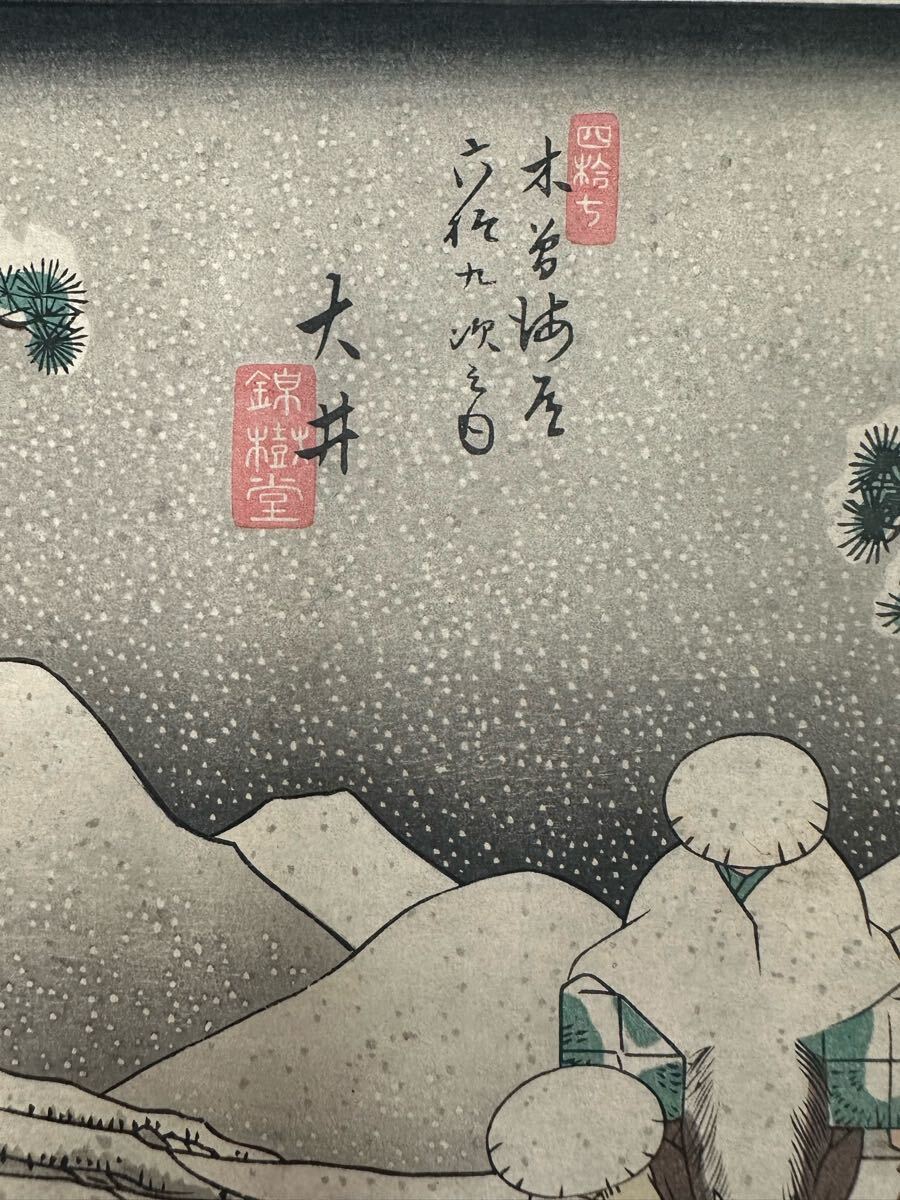 四拾七
木曽海道
六拾九次之内
大井
錦樹堂